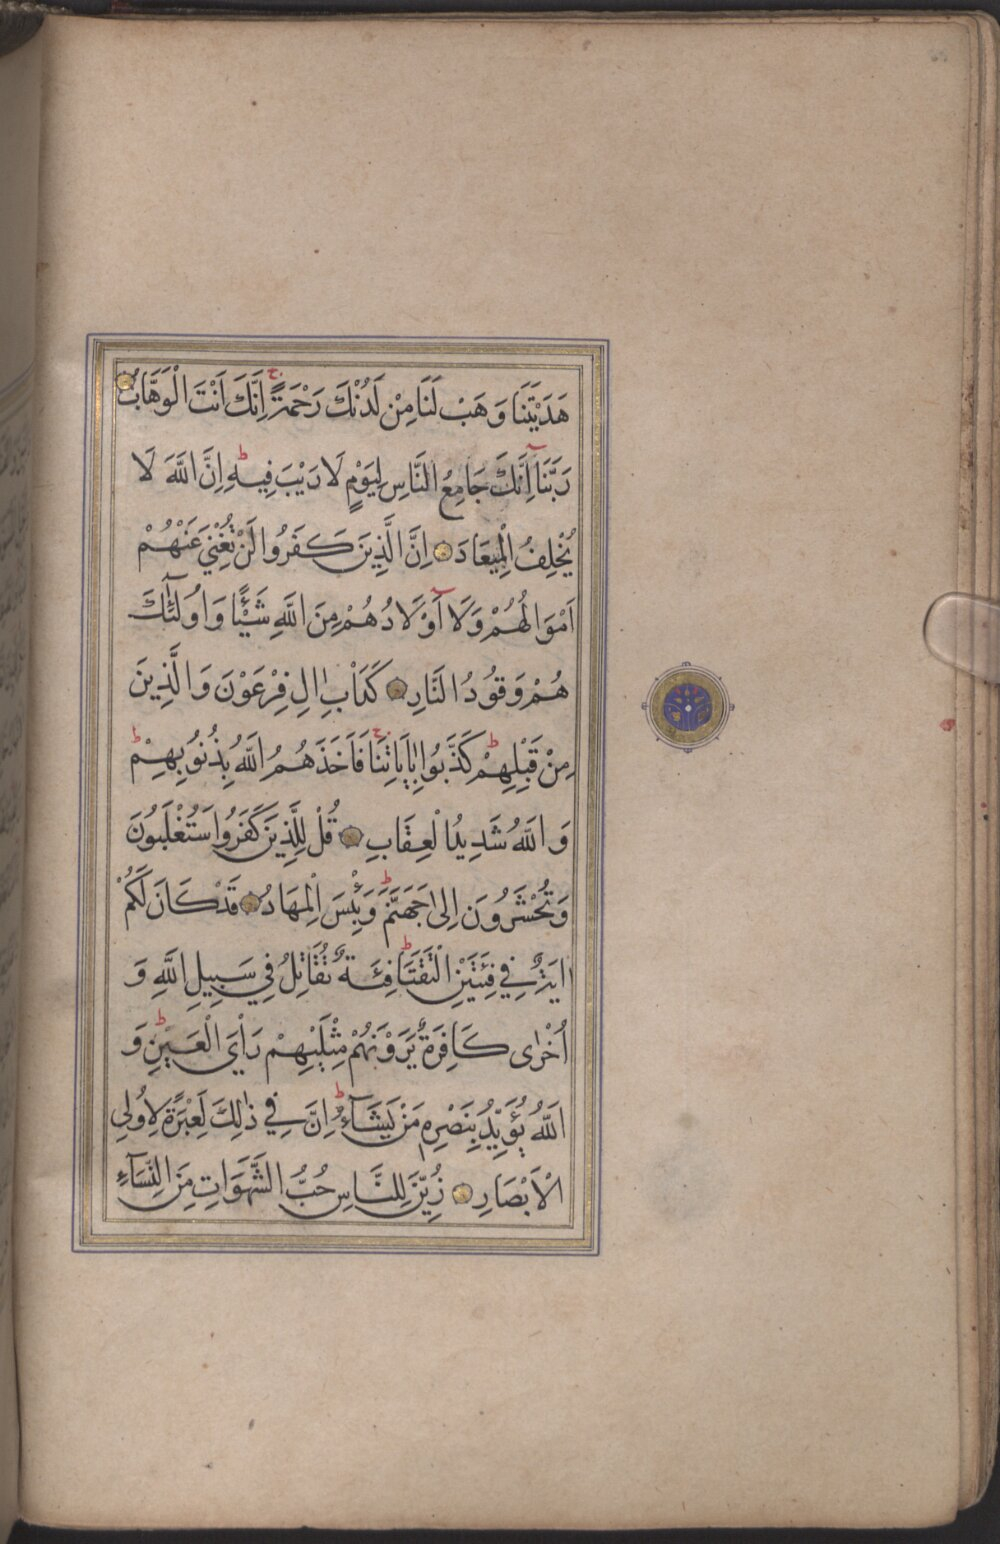 هَدَيْتَنَا وَهَبْ لَنَا مِنْ لَدُنْكَ رَحْمَةً اِنَّكَ اَنْتَ الْوَهَّابُ
رَبَّنَا اِنَّكَ جَامِعُ النَّاسِ لِيَوْمٍ لَا رَيْبَ فِيهِ اِنَّ اللّٰهَ لَا
يُخْلِفُ الْمِيعَادَ اِنَّ الَّذِينَ كَفَرُوا لَنْ تُغْنِيَ عَنْهُمْ
اَمْوَالُهُمْ وَلَا اَوْلَادُهُمْ مِنَ اللّٰهِ شَيْئًا وَاُولٰئِكَ
هُمْ وَقُودُ النَّارِ كَدَاْبِ اٰلِ فِرْعَوْنَ وَالَّذِينَ
مِنْ قَبْلِهِمْ كَذَّبُوا بِاٰيَاتِنَا فَاَخَذَهُمُ اللّٰهُ بِذُنُوبِهِمْ
وَاللّٰهُ شَدِيدُ الْعِقَابِ قُلْ لِلَّذِينَ كَفَرُوا سَتُغْلَبُونَ
وَتُحْشَرُونَ اِلٰى جَهَنَّمَ وَبِئْسَ الْمِهَادُ قَدْ كَانَ لَكُمْ
اٰيَةٌ فِي فِئَتَيْنِ الْتَقَتَا فِئَةٌ تُقَاتِلُ فِي سَبِيلِ اللّٰهِ وَ
اُخْرٰى كَافِرَةٌ يَرَوْنَهُمْ مِثْلَيْهِمْ رَاْيَ الْعَيْنِ وَ
اللّٰهُ يُؤَيِّدُ بِنَصْرِهِ مَنْ يَشَاءُ اِنَّ فِي ذٰلِكَ لَعِبْرَةً لِاُولِي
الْاَبْصَارِ زُيِّنَ لِلنَّاسِ حُبُّ الشَّهَوَاتِ مِنَ النِّسَاءِ